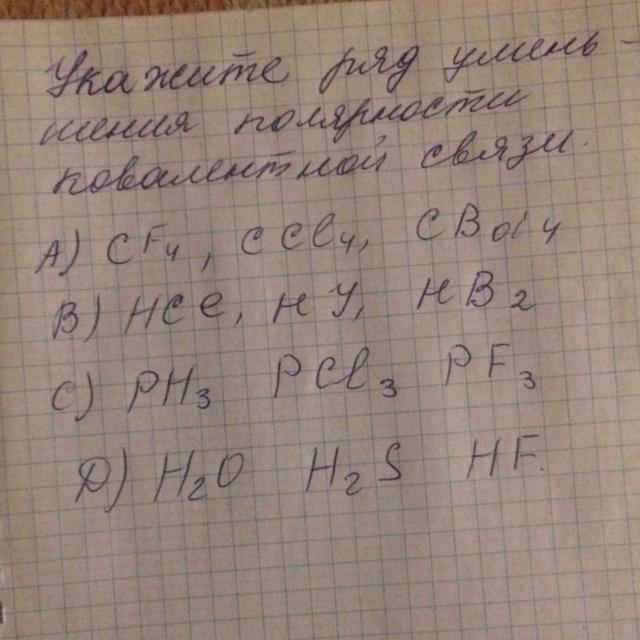 Укажите ряд умень-
шения полярности
ковалентной связи.
A) CF4, CCl4,
B) HCl, HJ, HB2
C) PH3 PCl3 PF3
D) H2O H2S HF.